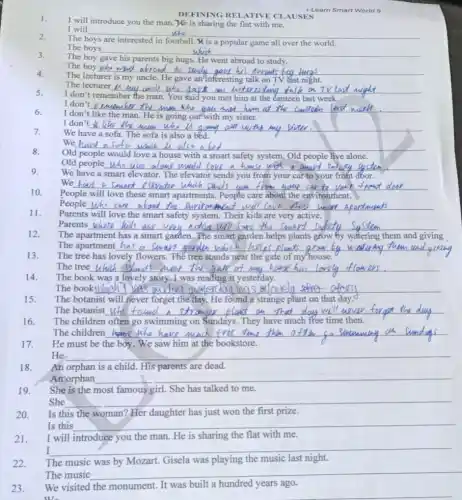 i-Learn Smart World 9
DEFINING RELATIVE CLAUSES
1. I will introduce you the man. He is sharing the flat with me.
I will
who
2. The boys are interested in football. It is a popular game all over the world.
The boys
which
3. The boy gave his parents big hugs. He went abroad to study.
The boy who went abroad to study gave his parents big hugs
4. The lecturer is my uncle. He gave an interesting talk on TV last night.
The lecturer is my uncle who gave an interesting talk on TV last night
5. I don't remember the man. You said you met him at the canteen last week.
I don't remember the man who you met him at the canteen last week
6. I don't like the man. He is going out with my sister.
I don't like the man who is going out with my sister.
7. We have a sofa. The sofa is also a bed.
We have a sofa which is also a bed
8. Old people would love a house with a smart safety system. Old people live alone.
Old people who live alone would love a house with a smart safety system.
9. We have a smart elevator. The elevator sends you from your car to your front door.
We have a smart elevator which sends you from your car to your front door
10. People will love these smart apartments. People care about the environment.
People who care about the environment will love these smart apartments
11. Parents will love the smart safety system. Their kids are very active.
Parents whose kids are very active will love the smart safety system
12. The apartment has a smart garden. The smart garden helps plants grow by watering them and giving
The apartment has a smart garden which helps plants grow by watering them and giving
13. The tree has lovely flowers. The tree stands near the gate of my house.
The tree which stands near the gate of my house has lovely flowers.
14. The book was a lovely story. I was reading it yesterday.
The book which I was reading yesterday was a lovely story
15. The botanist will never forget the day. He found a strange plant on that day.
The botanist who found a strange plant on that day will never forget the day
16. The children often go swimming on Sundays. They have much free time then.
The children who have much free time then often go swimming on Sundays
17. He must be the boy. We saw him at the bookstore.
He
18. An orphan is a child. His parents are dead.
An orphan
19. She is the most famous girl. She has talked to me.
She
20. Is this the woman? Her daughter has just won the first prize.
Is this
21. I will introduce you the man. He is sharing the flat with me.
I
22. The music was by Mozart. Gisela was playing the music last night.
The music
23. We visited the monument. It was built a hundred years ago.
We